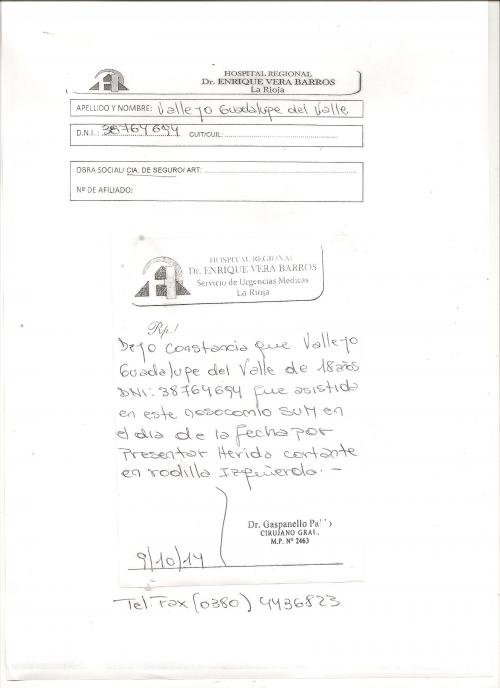 HOSPITAL REGIONAL
Dr. ENRIQUE VERA BARROS
La Rioja
APELLIDO Y NOMBRE: Vallejo Guadalupe del Valle
D.N.I.: 38764694 CUIT/CUIL:
OBRA SOCIAL/ CIA. DE SEGURO/ ART:
Nº DE AFILIADO:
HOSPITAL REGIONAL
Dr. ENRIQUE VERA BARROS
Servicio de Urgencias Medicas
La Rioja
Rp./
Dejo constancia que Vallejo
Guadalupe del Valle de 18 años
DNI: 38764694 fue asistida
en este nosocomio SUM en
el dia de la fecha por
Presentar Herida cortante
en rodilla Izquierda. -
Dr. Gaspanello
CIRUJANO GRAL.
M.P. Nº 2463
9/10/14
Tel: Fax (0380) 4436823